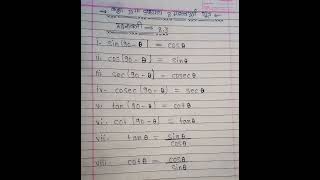 कक्षा 10
i. sin(90-θ) = cosθ
ii. cos(90-θ) = sinθ
iii. sec(90-θ) = cosecθ
iv. cosec(90-θ) = secθ
v. tan(90-θ) = cotθ
vi. cot(90-θ) = tanθ
vii. tanθ = sinθ/cosθ
viii. cotθ = cosθ/sinθ